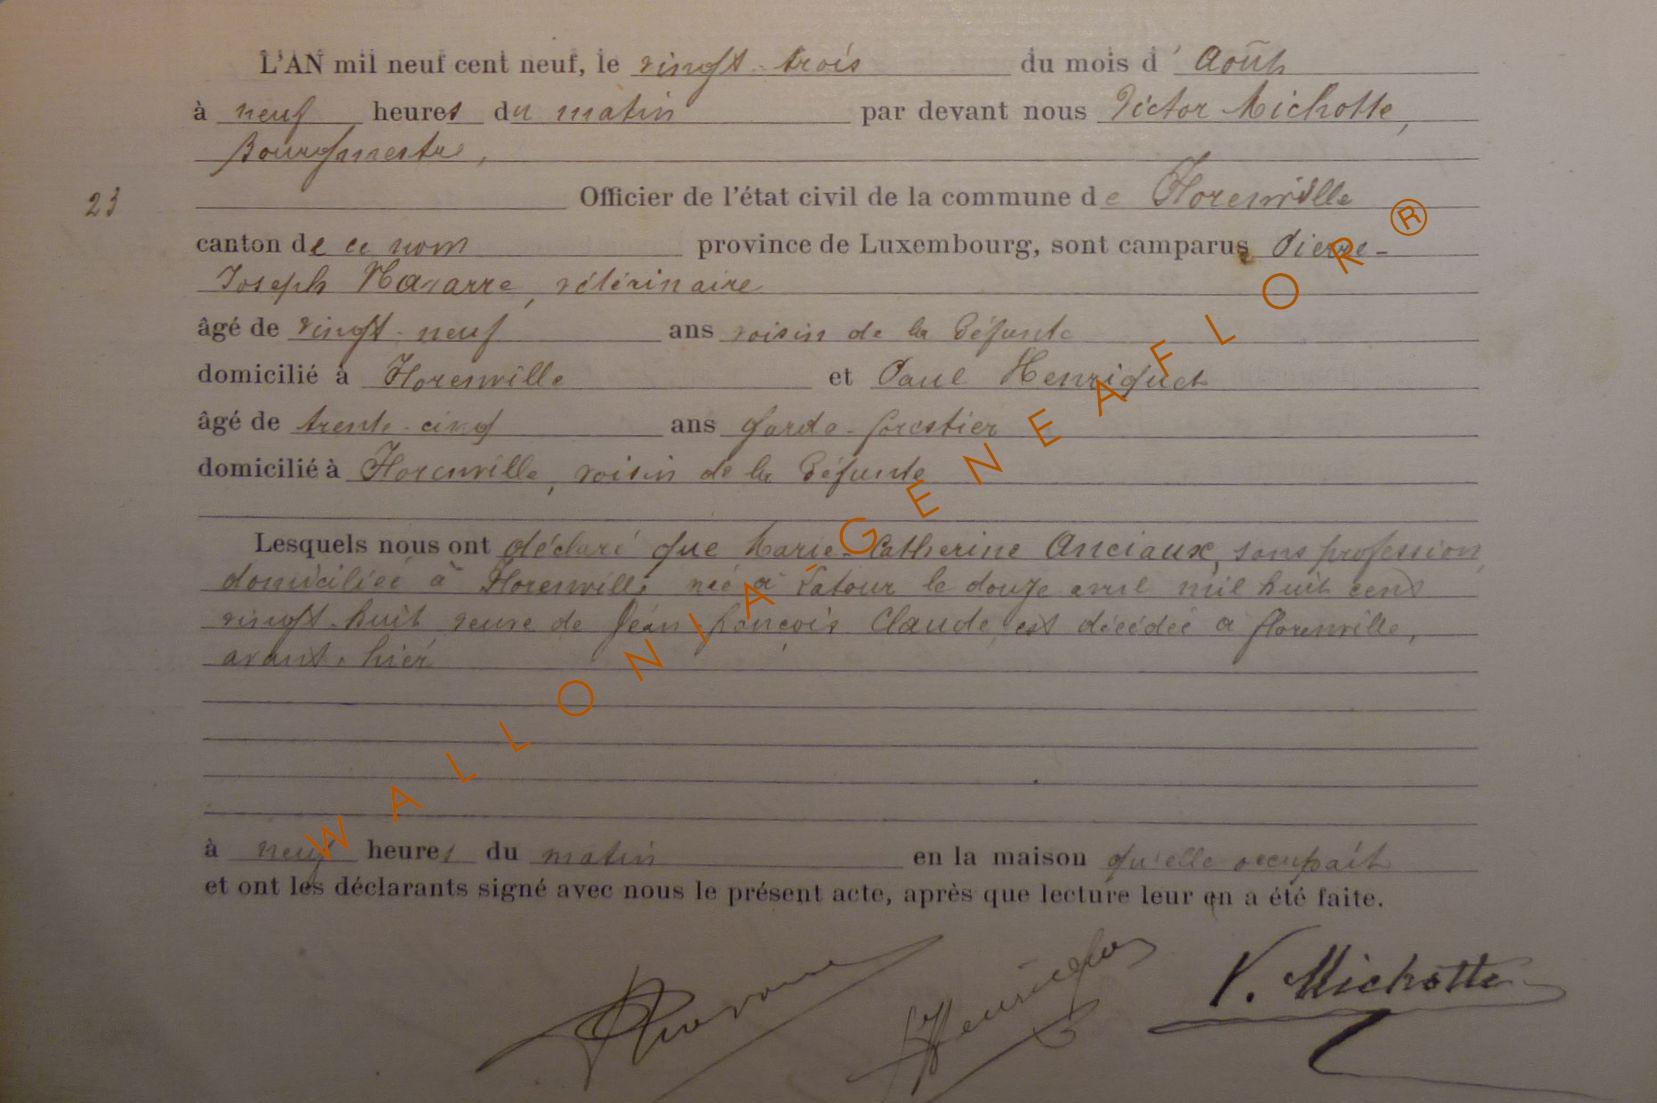 L'AN mil neuf cent neuf, le vingt-trois du mois d'Août
à neuf heures du matin par devant nous Victor Michotte,
Bourgmestre,
23 Officier de l'état civil de la commune de Florenville
canton de ce nom province de Luxembourg, sont camparus Pierre-
Joseph Navarre, vétérinaire
âgé de vingt-neuf ans voisin de la défunte
domicilié à Florenville et Paul Henriquet
âgé de trente-cinq ans garde-forestier
domicilié à Florenville, voisin de la défunte
Lesquels nous ont déclaré que Marie-Catherine Anciaux, sans profession,
domiciliée à Florenville née à Latour le douze avril mil huit cent
vingt-huit veuve de Jean françois Claude, est décédée à florenville,
avant-hier
à neuf heures du matin en la maison qu'elle occupait
et ont les déclarants signé avec nous le présent acte, après que lecture leur en a été faite.
Navarre Henriquet V. Michotte
WALLONIA-GENEAFLOR®